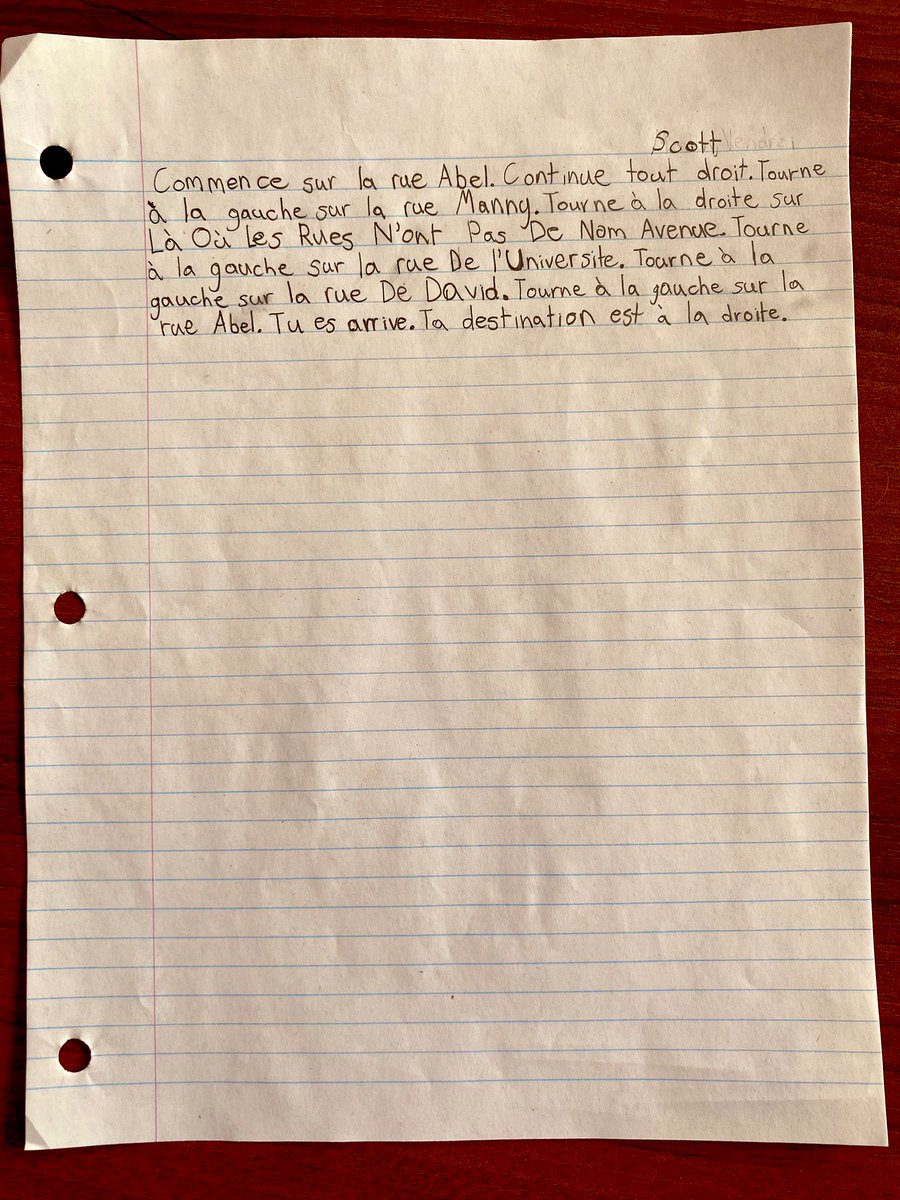 Scott Vendredi
Commence sur la rue Abel. Continue tout droit. Tourne
à la gauche sur la rue Manny. Tourne à la droite sur
Là Où Les Rues N'ont Pas De Nom Avenue. Tourne
à la gauche sur la rue De l'Universite. Tourne à la
gauche sur la rue De David. Tourne à la gauche sur la
rue Abel. Tu es arrive. Ta destination est à la droite.